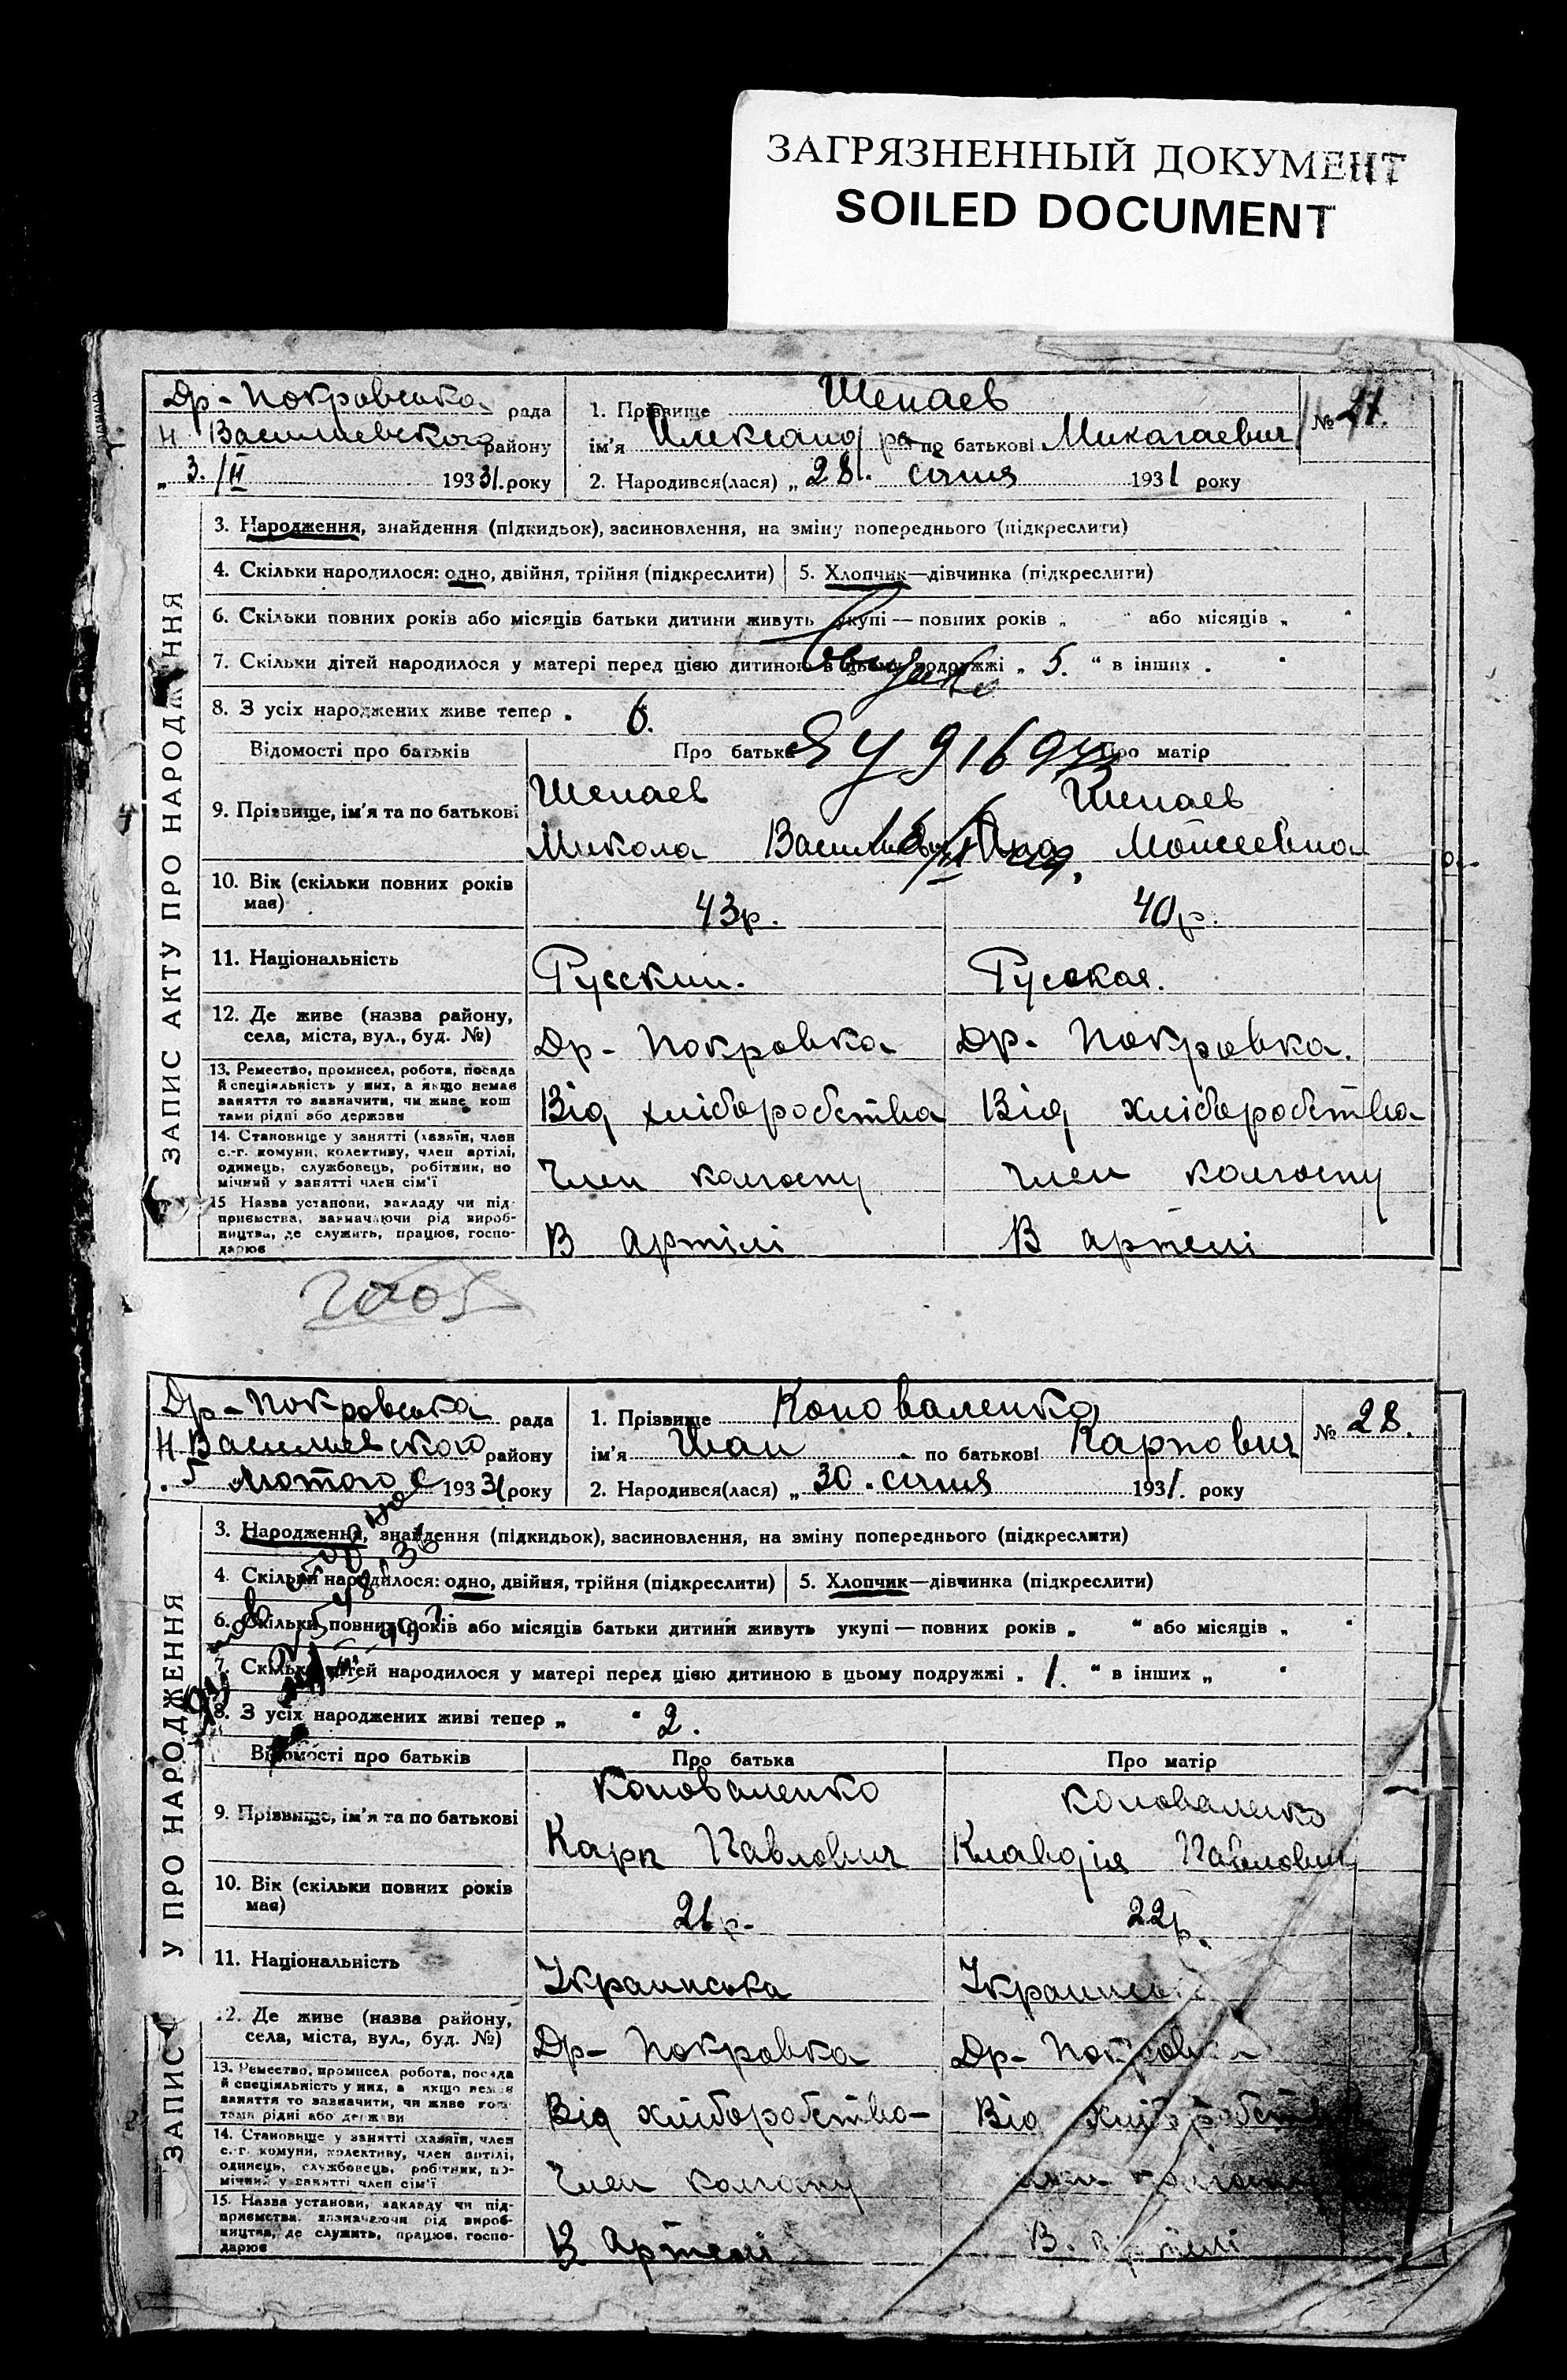 ЗАГРЯЗНЕННЫЙ ДОКУМЕНТ
SOILED DOCUMENT
Др-Покровська рада
Н Василиевского району
„ 3./II 1931. року
1. Прізвище Шепаев
ім'я по батькові Микалаевич
2. Народився(лася) „ 28. січня 1931 року
№ 21.
ЗАПИС АКТУ ПРО НАРОДЖЕННЯ
3. Народження, знайдення (підкидьок), засиновлення, на зміну попереднього (підкреслити)
4. Скільки народилося: одно, двійня, трійня (підкреслити)
5. Хлопчик—дівчинка (підкреслити)
6. Скільки повних років або місяців батьки дитини живуть укупі — повних років „ “ або місяців „ “
7. Скільки дітей народилося у матері перед цією дитиною в цьому подружжі „ 5. “ в інших „ “
8. З усіх народжених живе тепер „ 6.
Відомості про батьків Про батька Про матір
ЯУ 91697
9. Прізвище, ім'я та по батькові
Шепаев Шепаев
Микола Моисеевна
10. Вік (скільки повних років має)
43р. 40р.
11. Національність
Русский. Русская.
12. Де живе (назва району, села, міста, вул., буд. №)
Др- Покровка Др- Покровка.
13. Ремество, промисел, робота, посада й спеціяльність у них, а якщо немає заняття то зазначити, чи живе кош тами рідні або держави
Від хліборобства Від хліборобства
14. Становище у занятті (хазяїн, член с.-г. комуни, колективу, член артілі, одинець, службовець, робітник, по мічний у занятті член сім'ї
Член колгоспу Член колгоспу
15 Назва установи, закладу чи під- приємства, зазначаючи рід вироб- ництва, де служить, працює, госпо- дарює
В артілі В артелі
Др-Покровська рада
Н Василиевского району
„ 5 лютого 1931 року
1. Прізвище Коноваленко
ім'я Иван по батькові Карпович
2. Народився(лася) „ 30 “ січня 1931. року
№ 28.
ЗАПИС У ПРО НАРОДЖЕННЯ
3. Народження, знайдення (підкидьок), засиновлення, на зміну попереднього (підкреслити)
4. Скільки народилося: одно, двійня, трійня (підкреслити)
5. Хлопчик—дівчинка (підкреслити)
6. Скільки повних років або місяців батьки дитини живуть укупі — повних років „ “ або місяців „ “
7. Скільки дітей народилося у матері перед цією дитиною в цьому подружжі „ 1. “ в інших „ “
8. З усіх народжених живі тепер „ “ 2.
Відомості про батьків Про батька Про матір
9. Прізвище, ім'я та по батькові
Коноваленко Коноваленко
Карп Павлович Клавдія
10. Вік (скільки повних років має)
21р. 22р.
11. Національність
Українська
12. Де живе (назва району, села, міста, вул., буд. №)
Др- Покровка Др- Покровка
13. Ремество, промисел робота, посада й спеціяльність у них, а якщо немає заняття то зазначити, чи живе кош тами рідні або держави
Від хліборобства Від хліборобства
14. Становище у занятті (хазяїн, член с.-г. комуни, колективу, член артілі, одинець, службовець, робітник, по- мічний у занятті член сім'ї
Член колгоспу
15. Назва установи, закладу чи під- приємства, зазначаючи рід вироб- ництва, де служить, працює, госпо- дарює
В артелі В артілі